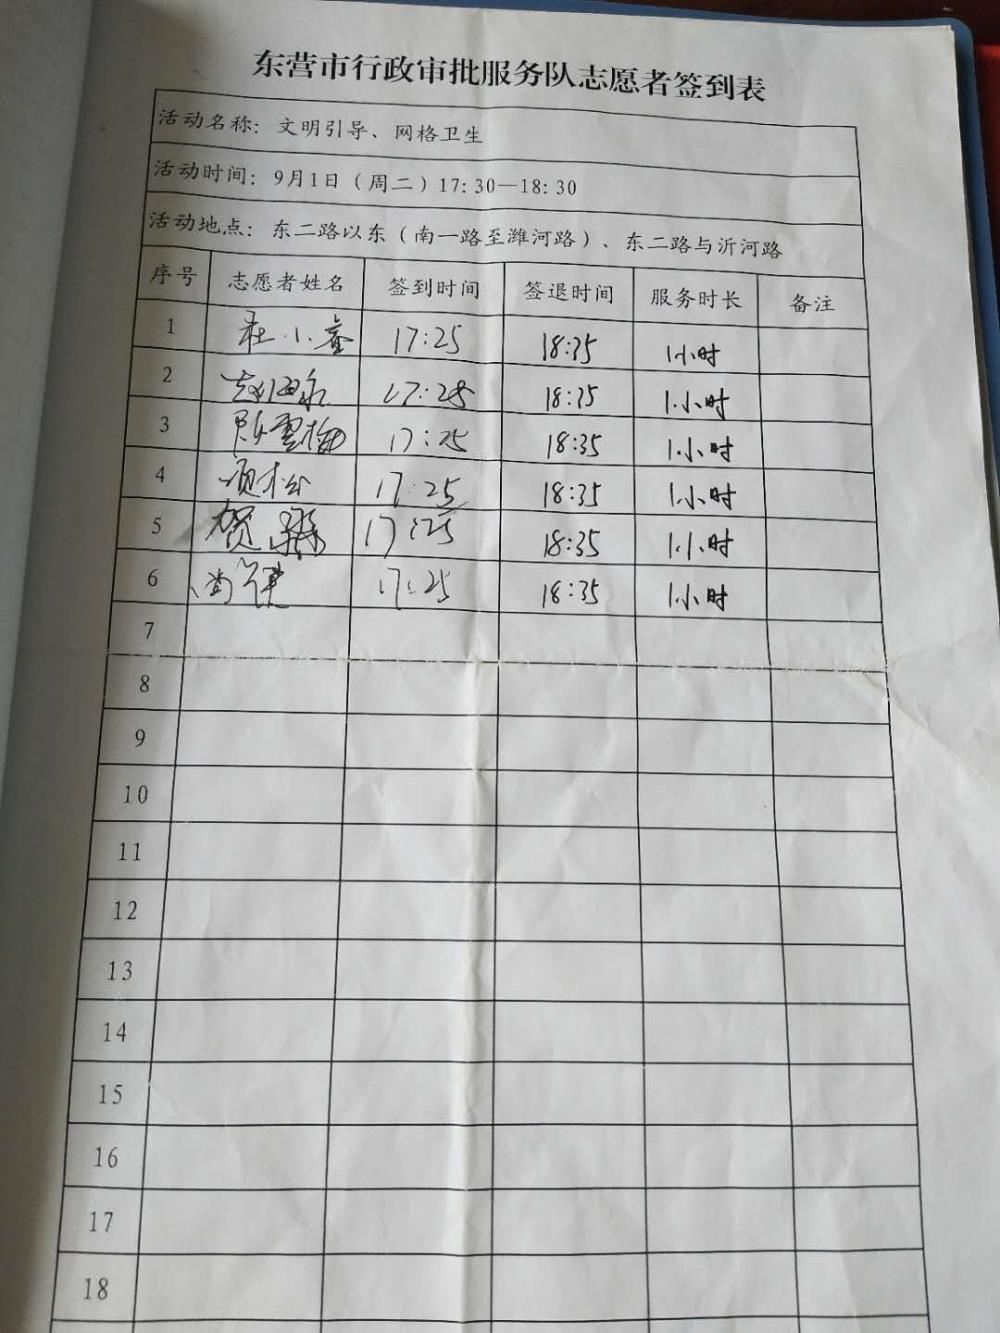 东营市行政审批服务队志愿者签到表
活动名称：文明引导、网格卫生
活动时间：9月1日（周二）17:30—18:30
活动地点：东二路以东（南一路至潍河路）、东二路与沂河路
序号 志愿者姓名 签到时间 签退时间 服务时长 备注
1 杜小 17:25 18:35 1小时
2 17:25 18:35 1小时
3 陈雪梅 17:25 18:35 1小时
4 项松 17:25 18:35 1小时
5 贺 17:25 18:35 1小时
6 尚 17:25 18:35 1小时
7
8
9
10
11
12
13
14
15
16
17
18